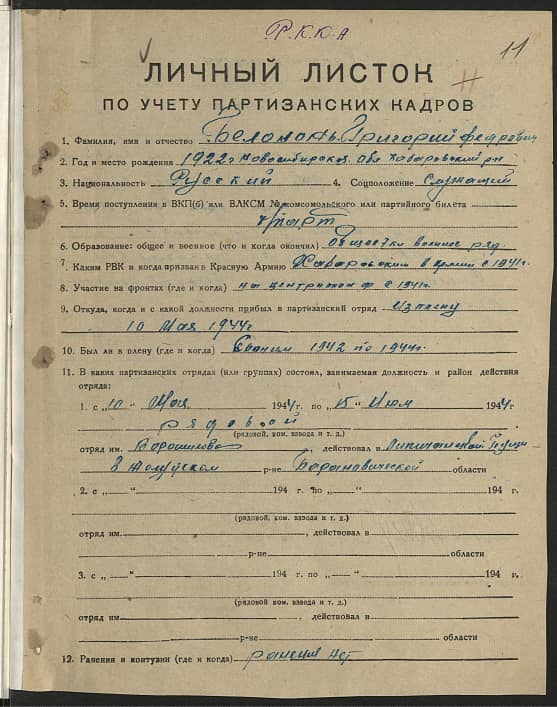 Р.К.К.А
11
ЛИЧНЫЙ ЛИСТОК
ПО УЧЕТУ ПАРТИЗАНСКИХ КАДРОВ
1. Фамилия, имя и отчество Григорий
2. Год и место рождения 1922 г Новосибирская обл
3. Национальность Русский 4. Соцположение Служащий
5. Время поступления в ВКП(б) или ВЛКСМ № комсомольского или партийного билета
б/парт
6. Образование: общее и военное (что и когда окончил) военное ряд.
7. Каким РВК и когда призван в Красную Армию в армии с 1941г.
8. Участие на фронтах (где и когда) на центральном ф с 1941г.
9. Откуда, когда и с какой должности прибыл в партизанский отряд из плену
10 Мая 1944г
10. Был ли в плену (где и когда) 1942 по 1944г.
11. В каких партизанских отрядах (или группах) состоял, занимаемая должность и район действия
отряда:
1. с „10“ Мая 1944 г. по „15“ Июл 1944 г
рядовой
(рядовой, ком. взвода и т. д.)
отряд им. Ворошилова, действовал в Липичанской Пущи
в р-не Барановичской области
2. с „ “ 194 г. по „ “ 194 г.
(рядовой, ком. взвода и т. д.)
отряд им. , действовал в
р-не области
3. с „ “ 194 г. по „ “ 194 г.
(рядовой, ком. взвода и т. д.)
отряд им , действовал в
р-не области
12. Ранения и контузии (где и когда) ранения нет